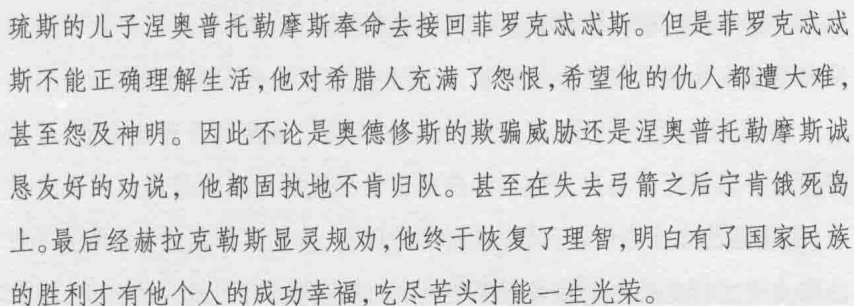 琉斯的儿子涅奥普托勒摩斯奉命去接回菲罗克忒忒斯。但是菲罗克忒忒
斯不能正确理解生活,他对希腊人充满了怨恨,希望他的仇人都遭大难,
甚至怨及神明。因此不论是奥德修斯的欺骗威胁还是涅奥普托勒摩斯诚
恳友好的劝说，他都固执地不肯归队。甚至在失去弓箭之后宁肯饿死岛
上。最后经赫拉克勒斯显灵规劝,他终于恢复了理智,明白有了国家民族
的胜利才有他个人的成功幸福,吃尽苦头才能一生光荣。